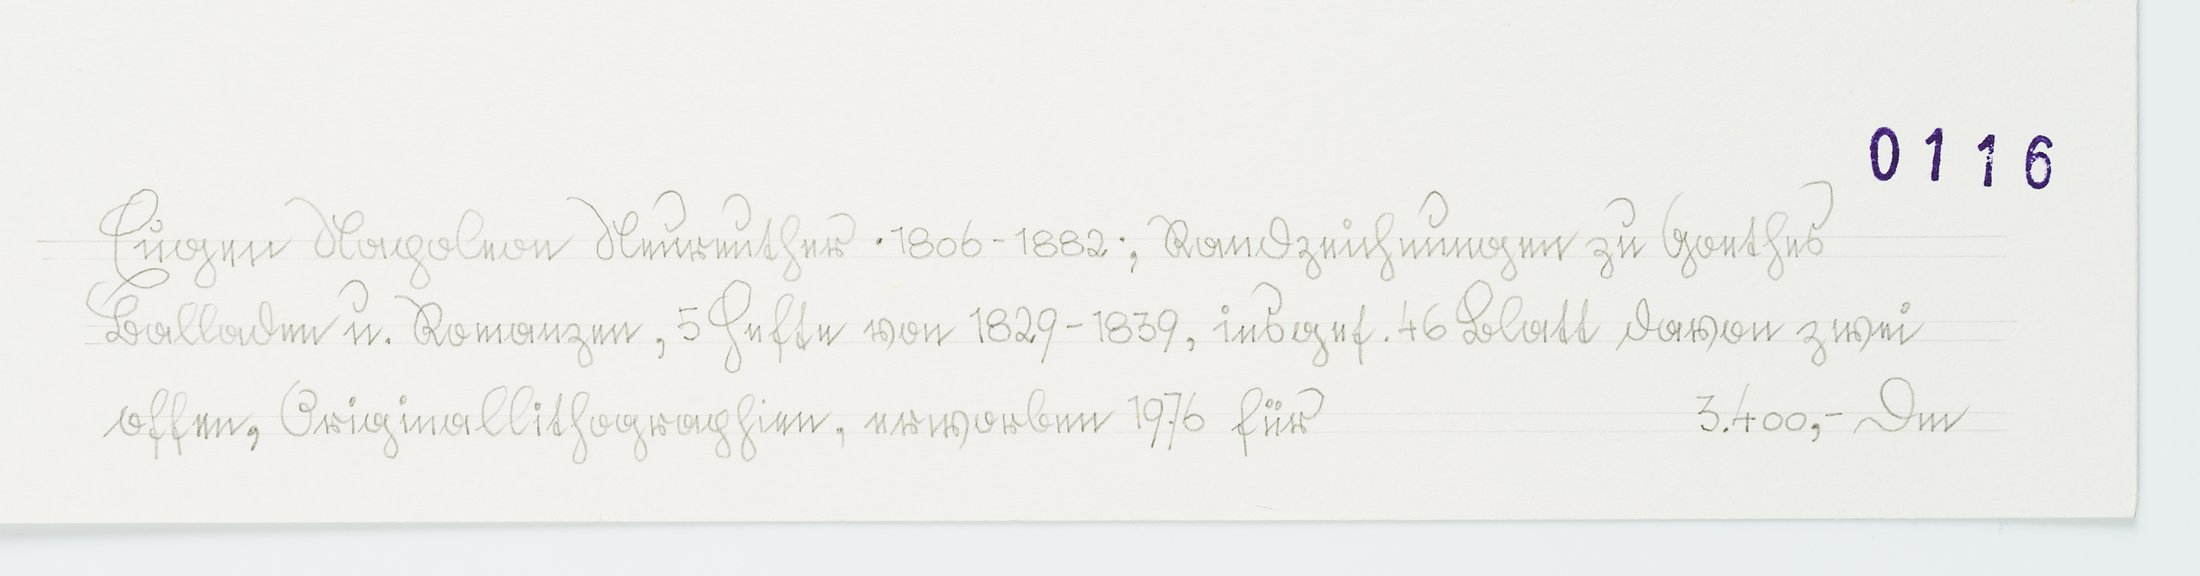 0116
Eugen Napoleon Neureuther · 1806 - 1882 ·, Randzeichnungen zu Goethes
Balladen u. Romanzen, 5 Hefte von 1829 - 1839, insges. 46 Blatt davon zwei
offen, Originallithographien, erworben 1976 für 3.400,- Dm